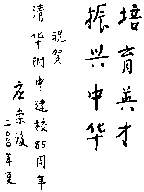 培育英才
振兴中华
祝贺
清华附中建校85周年
庄宗毅
二〇〇〇年夏